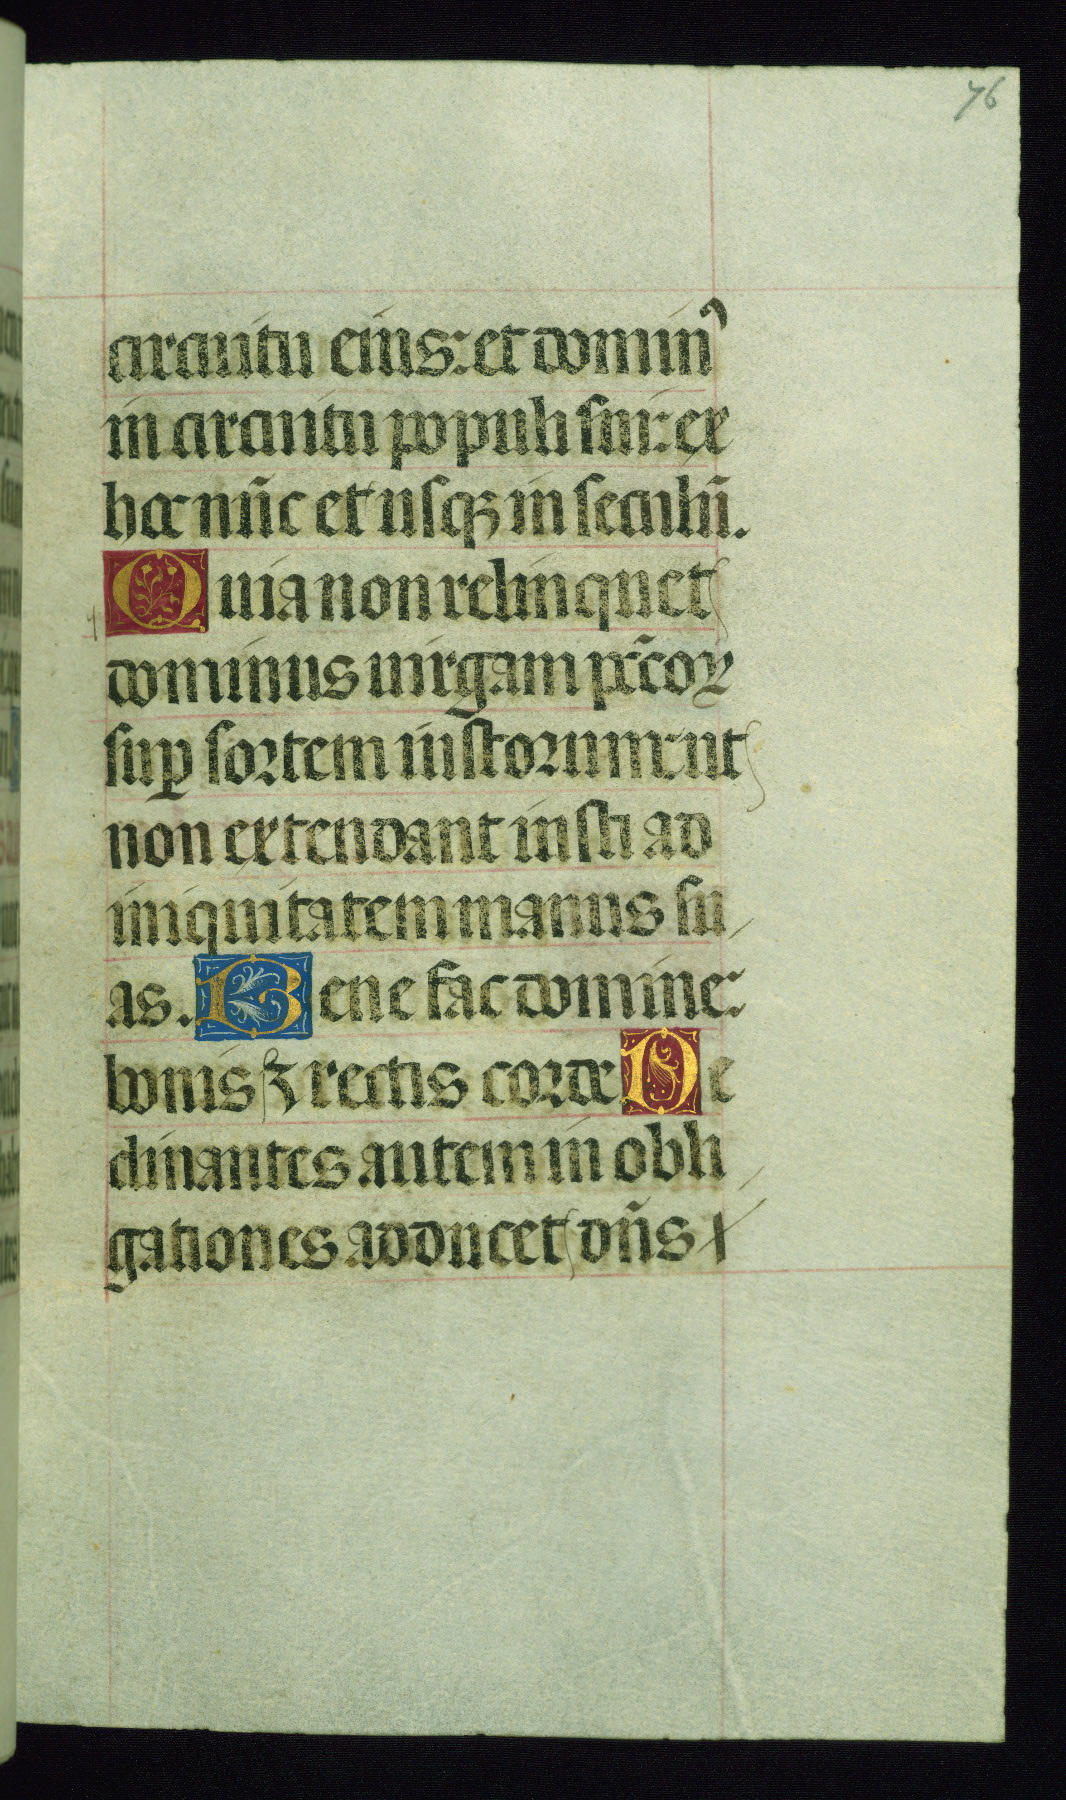 76
circuitu eius: et dominꝰ
in circuitu populi sui: ex
hoc nūc et usqꝫ in seculū.
Quia non relinquet
dominus uirgam pc̄coꝝ
suꝑ sortem iustorum: ut
non extendant iusti ad
iniquitatem manus su/
as. Bene fac domine:
bonis ⁊ rectis corde De
clinantes autem in obli/
gationes adducet dn̄s